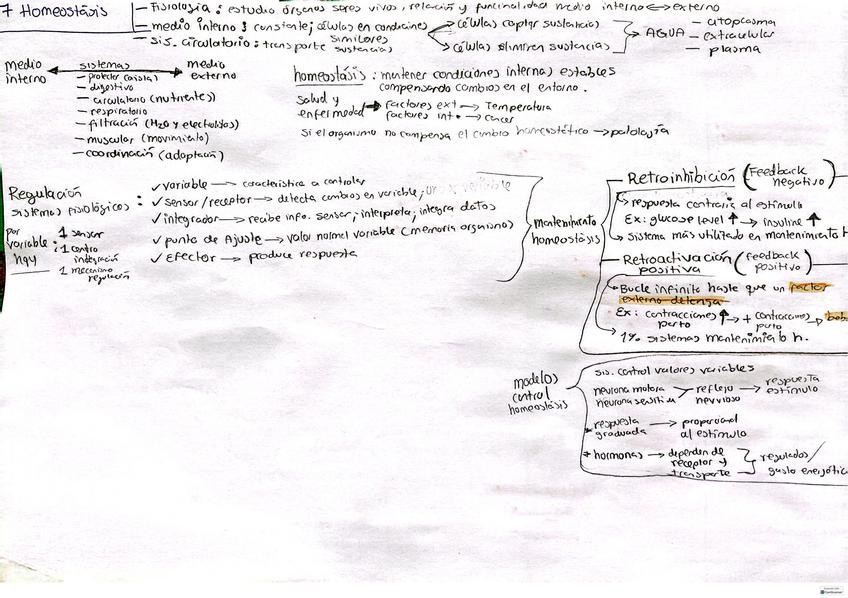 7 Homeostásis
— Fisiología : estudio órganos seres vivos, relación y funcionalidad medio interno ↔ externo
— medio interno : constante; células en condiciones similares
células captar sustancias
células eliminen sustancias
AGUA
— citoplasma
— extracelular
— plasma
— sis. circulatorio : transporte sustancias
medio interno
sistemas
medio externo
— protector (aislar)
— digestivo
— circulatorio (nutrientes)
— respiratorio
— filtración (H2O y electrolitos)
— muscular (movimiento)
— coordinación (adaptación)
homeostásis : mantener condiciones internas estables
compensando cambios en el entorno.
salud y enfermedad
factores ext → Temperatura
factores int → cancer
Si el organismo no compensa el cambio homeostético → patología
Regulación
sistemas fisiológicos :
✓ variable → característica a controlar
✓ sensor/receptor → detecta cambios en variable, variable
✓ integrador → recibe info. sensor, interpreta, integra datos
✓ punto de Ajuste → valor normal variable (memoria organismo)
✓ Efector → produce respuesta
por variable hay :
1 sensor
1 centro integración
1 mecanismo regulación
mantenimiento homeostásis
— Retroinhibición (Feedback negativo)
respuesta contraria al estímulo
Ex: glucose level ↑ → insuline ↑
sistema más utilizado en mantenimiento h
— Retroactivación positiva (feedback positivo)
Bucle infinito hasta que un factor
externo detenga
Ex: contracciones parto ↑ → + contracciones parto → beb
1% sistemas mantenimiento h.
modelos control homeostásis
sis. control valores variables
neurona motora
neurona sensitiva
reflejo nervioso → respuesta estímulo
respuesta graduada → proporcional al estímulo
* hormonas → dependen de receptor y transporte
regulados/
gasto energético